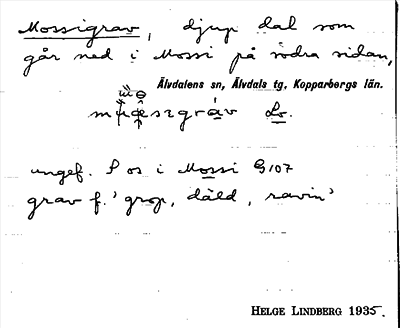 Mossigrav, djup dal som
går ned i Mossi på södra sidan,
Älvdalens sn, Älvdals tg, Kopparbergs län.
Lo.
ungef. S os i Mossi G107
grav f. 'grop, däld, ravin'
HELGE LINDBERG 1935.